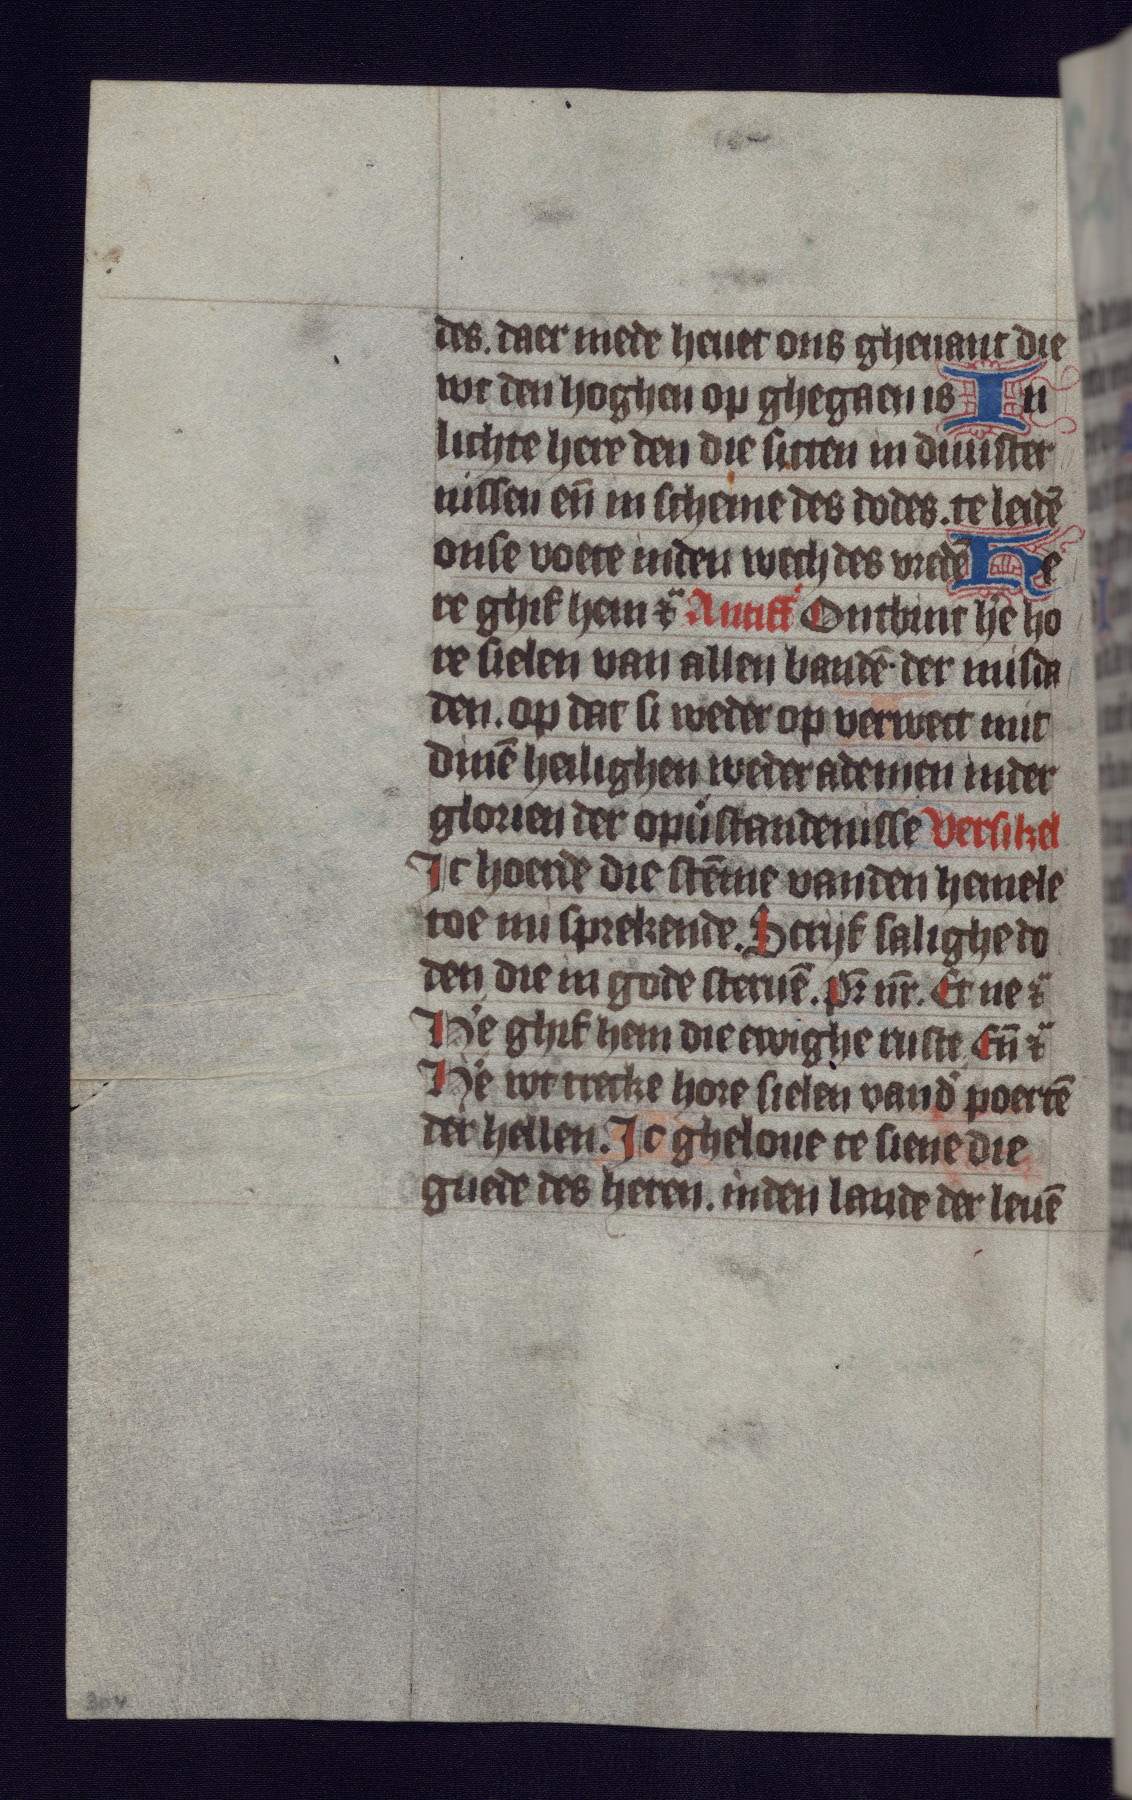 des. daer mede heuet ons ghevant die
wt den hoghen op ghegaen is In
lichte here den die sitten in duuster
nissen eñ in scheme des dodes. te leidē
onse voete inden wech des vredē He
re ghif hem ⁊c̄ Antiff Ontbint h̄e ho
re sielen van allen bandē der misda
den. op dat si weder op verwect mit
dinē heilighen weder ademen inder
glorien der opūstandenisse Versikel
Ic hoerde die stēme vanden hemele
toe mi sprekende. Scrijf salighe do
den die in gode steruē. Pr̄ nr̄. Et ne ⁊c̄
H̄e ghif hem die ewighe ruste Eñ ⁊c̄
H̄e wt trecke hore sielen vand' poertē
der hellen. Ic gheloue te siene die
guede des heren. inden lande der leuē
304